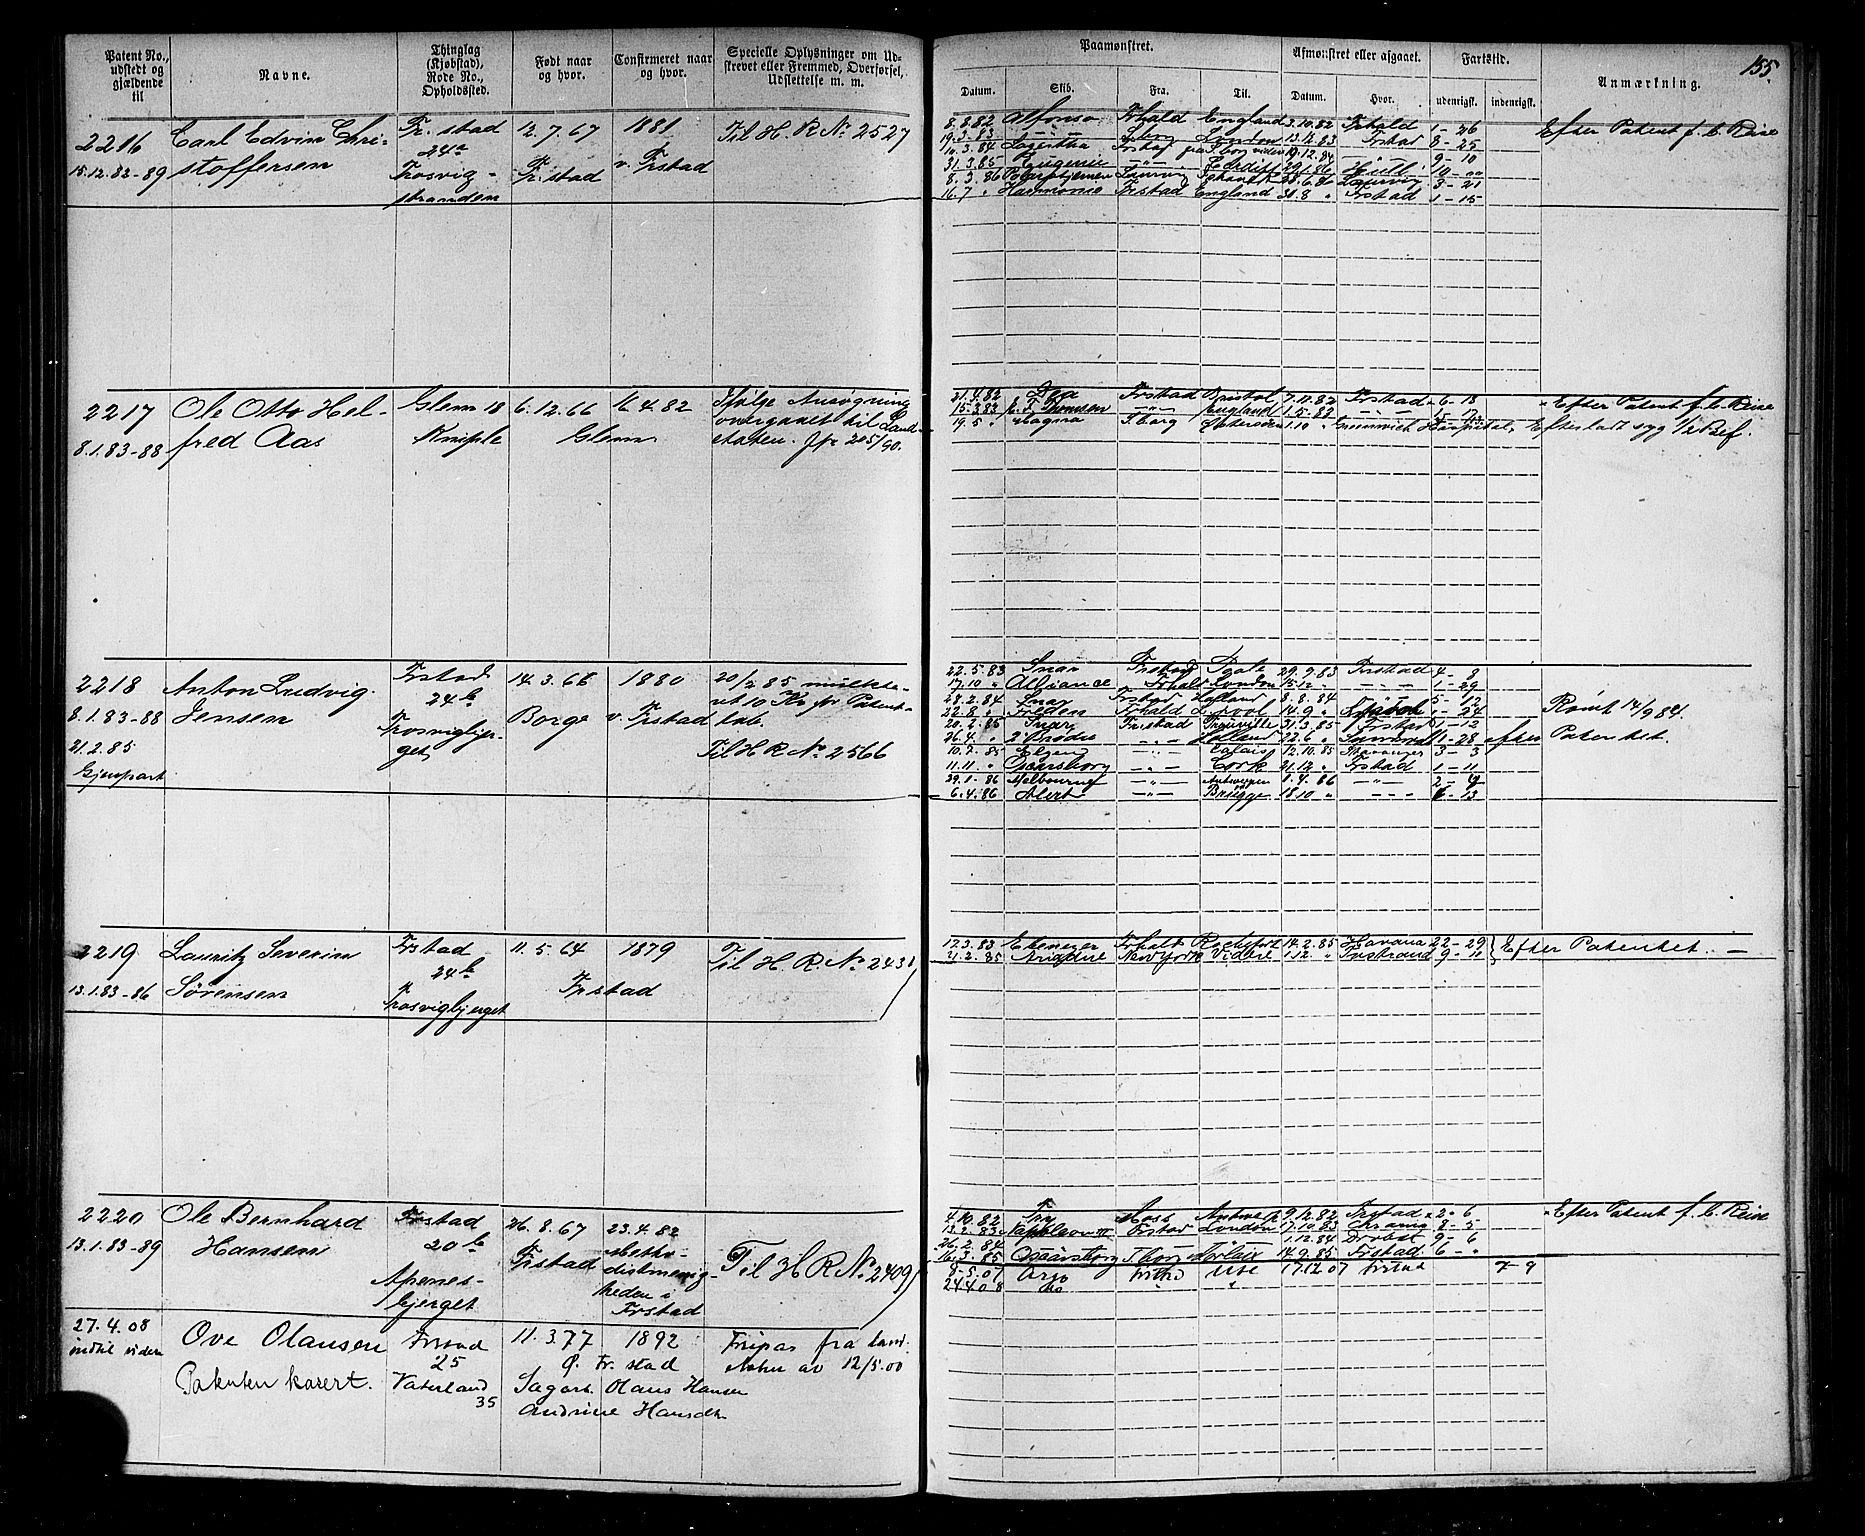 Patent No., udstedt og gjældende til
Navne.
Thinglag (Kjøbstad), Rode No., Opholdssted.
Født naar og hvor.
Confirmeret naar og hvor.
Specielle Oplysninger om Udskrevet eller Fremmed, Overførsel, Udslettelse m. m.
Paamønstret.
Afmønstret eller afgaaet.
Fartstid.
Anmærkning.
155
Datum.
Skib.
Fra.
Til.
Datum.
Hvor.
udenrigsk.
indenrigsk.
2216
15.12.83-89
Carl Edvin Chri-
stoffersen
Fr.stad
24a
Trosvig-
stranden
12.7.67
Fr.stad
1881
v. Frstad
Til H. R No. 2527
8.2.82 Alfonso Frhald England 3.10.82 Frhald 1-26
19.3.83 London 13.12.83 Frstad 8-25
14.3.84 Lagertha
31.3.85 Eugenie Cardiff Hull 10
8.3.86 Polarstjernen Laurvig Laurvig 3-21
16.7 " Harmonie Frstad England 30.8 " Frstad 1-15
Efter Patent f. b. Reise
2217
8.1.83-88
Ole Otto Hel-
fred Aas
Glem 18
Kniple
6.12.66
Glem
16.4.82
Ifølge Ansøgning
overgaaet til Land-
etaten. Jfr 205/90.
21.4.82 Frstad Bristol 7.11.82 Frstad 6-18
15.3.83 Thomsen England 1.5.83
19.5 " Magna F.borg 1.10 " Greenwich Hospital,
Efter Patent f. b. Reise
Efterladt syg 1/2 Bef.
2218
8.1.83-88
21.2.85
Gjenpart
Anton Ludvig
Jensen
Frstad
24b
Trosvigbjer-
get
14.3.66
Borge
1880
v. Frstad
20/2 85 mulkte-
ret 10 Kr for Patent-
tab.
Til H R No. 2566
22.5.83 Snar Frstad 29.9.83 Frstad 4-8
17.10 " Alliance Frhald London 15.12 1-29
28.2.84 Snar Frstad Holland 8.8.84 5-12
22.8 " Frieden Frhald L.pool 14.9 " 1-24
20.2.85 Snar Fr.stad Trouville 31.3.85 Frstad 1-12
26.4 " 2 Brødre Holland 22.6 " 1-28 efter
10.7.85 Calais 12.10.85 Stavanger 3-3
11.11 " Sparsborg Cork 21.12 " Frstad 1-11
29.1.86 Melbourne Antwerpen 8.4.86 2-9
6.4.86 Alert Brügge 18.10 " 6-13
Rømt 14/9 84.
Patentet.
2219
13.1.83-86
Lauritz Severin
Sørensen
Frstad
24b
Trosvigbjerget
11.5.64
1879
Frstad
Til H. R. No. 2431
17.3.83 Ebenezer Frhald Rochefort 14.2.85 Havana 22-29
21.2.85 Ariadne New York 1.12 " 9-10
Efter Patentet. —
2220
13.1.83-89
Ole Bernhard
Hansen
Frstad
20b
Apenes-
bjerget
26.8.67
Frstad
23.4.82
Metho-
distmenig-
heden i
Frstad
Til H R No. 2409
4.10.82 Moss 9.12.82 Frstad 2-6
13.2.83 Napoleon III Frstad London 17.10.83 Chrania 8-5
26.2.84 1.12.84 Drobak 9-6
16.3.85 Sparsborg F.borg 14.9.85 Frstad 6-"
Efter Patent f. b. Reise
27.4.08
indtil viden
Ove Olausen
Patenten kasert.
Frstad
25
Vaterland
35
11.3.77
Ø. Fr. stad
1892
Sagarb. Olaus Hansen
Andrine Hansdtr
Fripas fra
av 12/5.00
8.5.07 Argo 17.12.07 Frstad 7-9
24.4.08 do